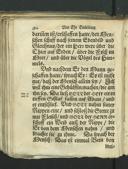 ist/erschaffen hatte, den Men-
schen schuff nach seinem Ebenbild und
Gleichnuß/der ein Herr were über die
Thier auff Erden / über die Fisch im
Meer / und über die Vögel des Him-
mels.
Und nachdem Er den Adam ge-
schaffen hatte / sprach Er: Es ist nicht
gut / daß der Mensch allein sey / Ich
will ihm eine Gehülffin machen/die umb
ihn sey. Da ließ GOTT der HERR einen
tieffen Schlaf fallen auf Adam / und
er entschlieff. Und GOTT nahm seiner
Rippen eine / und schloß die Stätte zu
mit Fleisch / und GOTT der HERR
ein Weib auß der Rippe / die
Er von dem Menschen nahm / und
brachte sie zu ihm. Da sprach der
Mensch: Das ist einmal Bein von